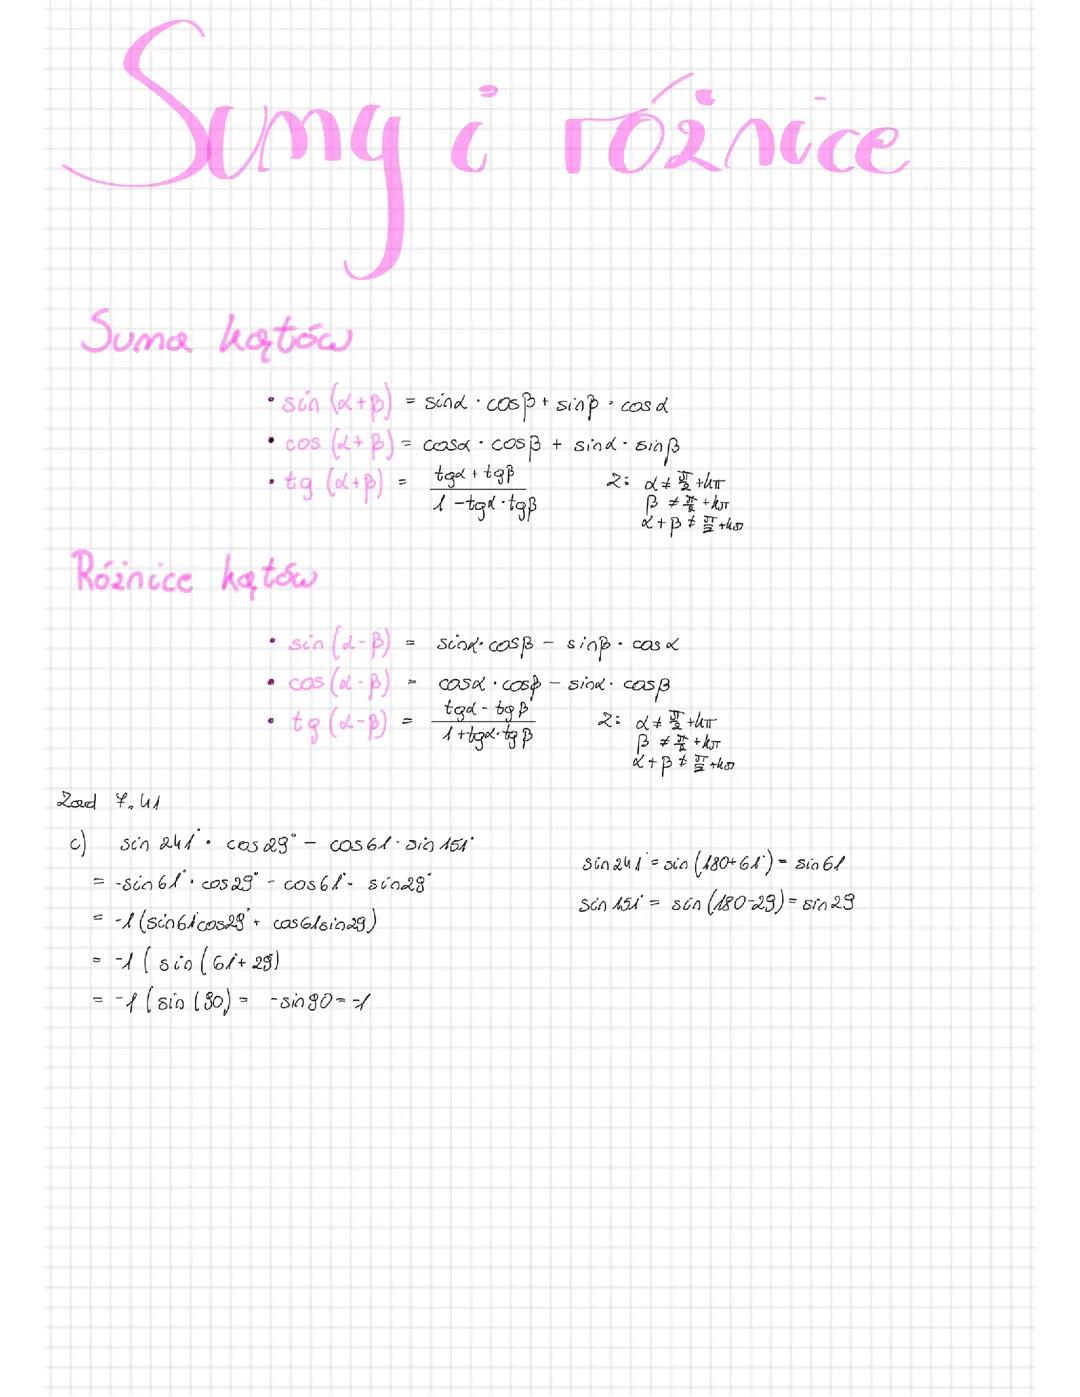 Sumy i różnice
Suma kątów
• sin (α+β) = sinα · cosβ + sinβ · cosα
• cos (α+β) = cosα · cosβ + sinα · sinβ
• tg (α+β) = (tgα + tgβ) / (1 - tgα · tgβ)
Z: α ≠ π/2 + kπ
β ≠ π/2 + kπ
α + β ≠ π/2 + kπ
Różnice kątów
• sin (α-β) = sinα · cosβ - sinβ · cosα
• cos (α-β) = cosα · cosβ - sinα · cosβ
• tg (α-β) = (tgα - tgβ) / (1 + tgα · tgβ)
Z: α ≠ π/2 + kπ
β ≠ π/2 + kπ
α + β ≠ π/2 + kπ
Zad 7.41
c) sin 241° · cos 29° - cos 61° · sin 151°
= -sin 61° · cos 29° - cos 61° · sin 29°
= -1 (sin 61° cos 29° + cos 61 sin 29)
= -1 ( sin (61° + 29)
= -1 ( sin (90) = -sin 90 = -1
sin 241° = sin (180+61°) = sin 61
sin 151° = sin (180-29) = sin 29